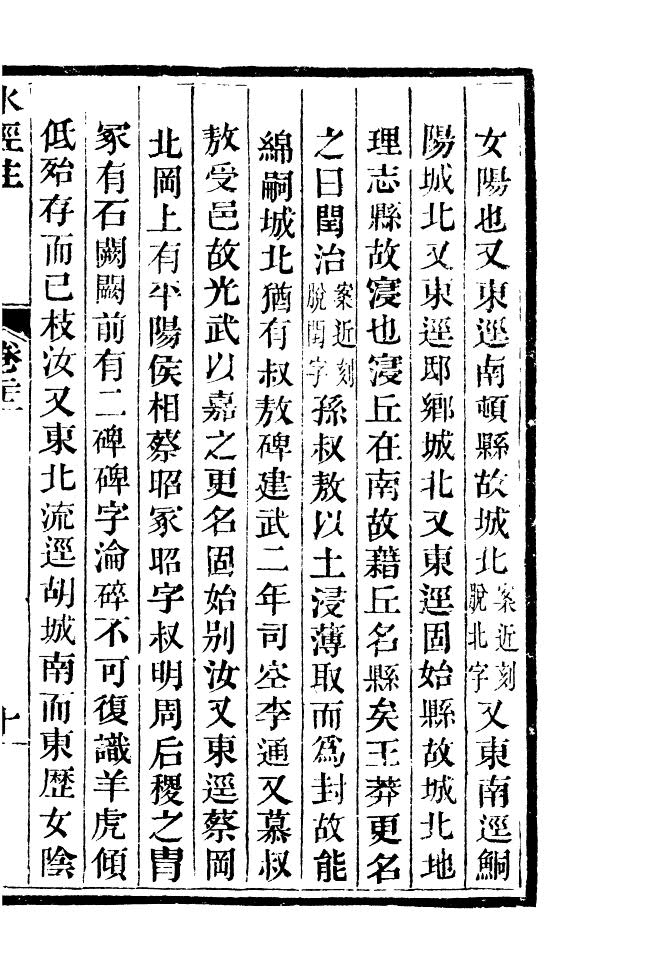 女陽也又東逕南頓縣故城北案近刻脫北字又東南逕鮦
陽城北又東逕邸鄉城北又東逕固始縣故城北地
理志縣故寖也寖丘在南故藉丘名縣矣王莽更名
之曰閏治案近刻脫閏字孫叔敖以土浸薄取而爲封故能
綿嗣城北猶有叔敖碑建武二年司空李通又慕叔
敖受邑故光武以嘉之更名固始别汝又東逕蔡岡
北岡上有平陽侯相蔡昭冢昭字叔明周后稷之胄
冢有石闕闕前有二碑碑字淪碎不可復識羊虎傾
低殆存而已枝汝又東北流逕胡城南而東歷女陰
水經注
卷二
十